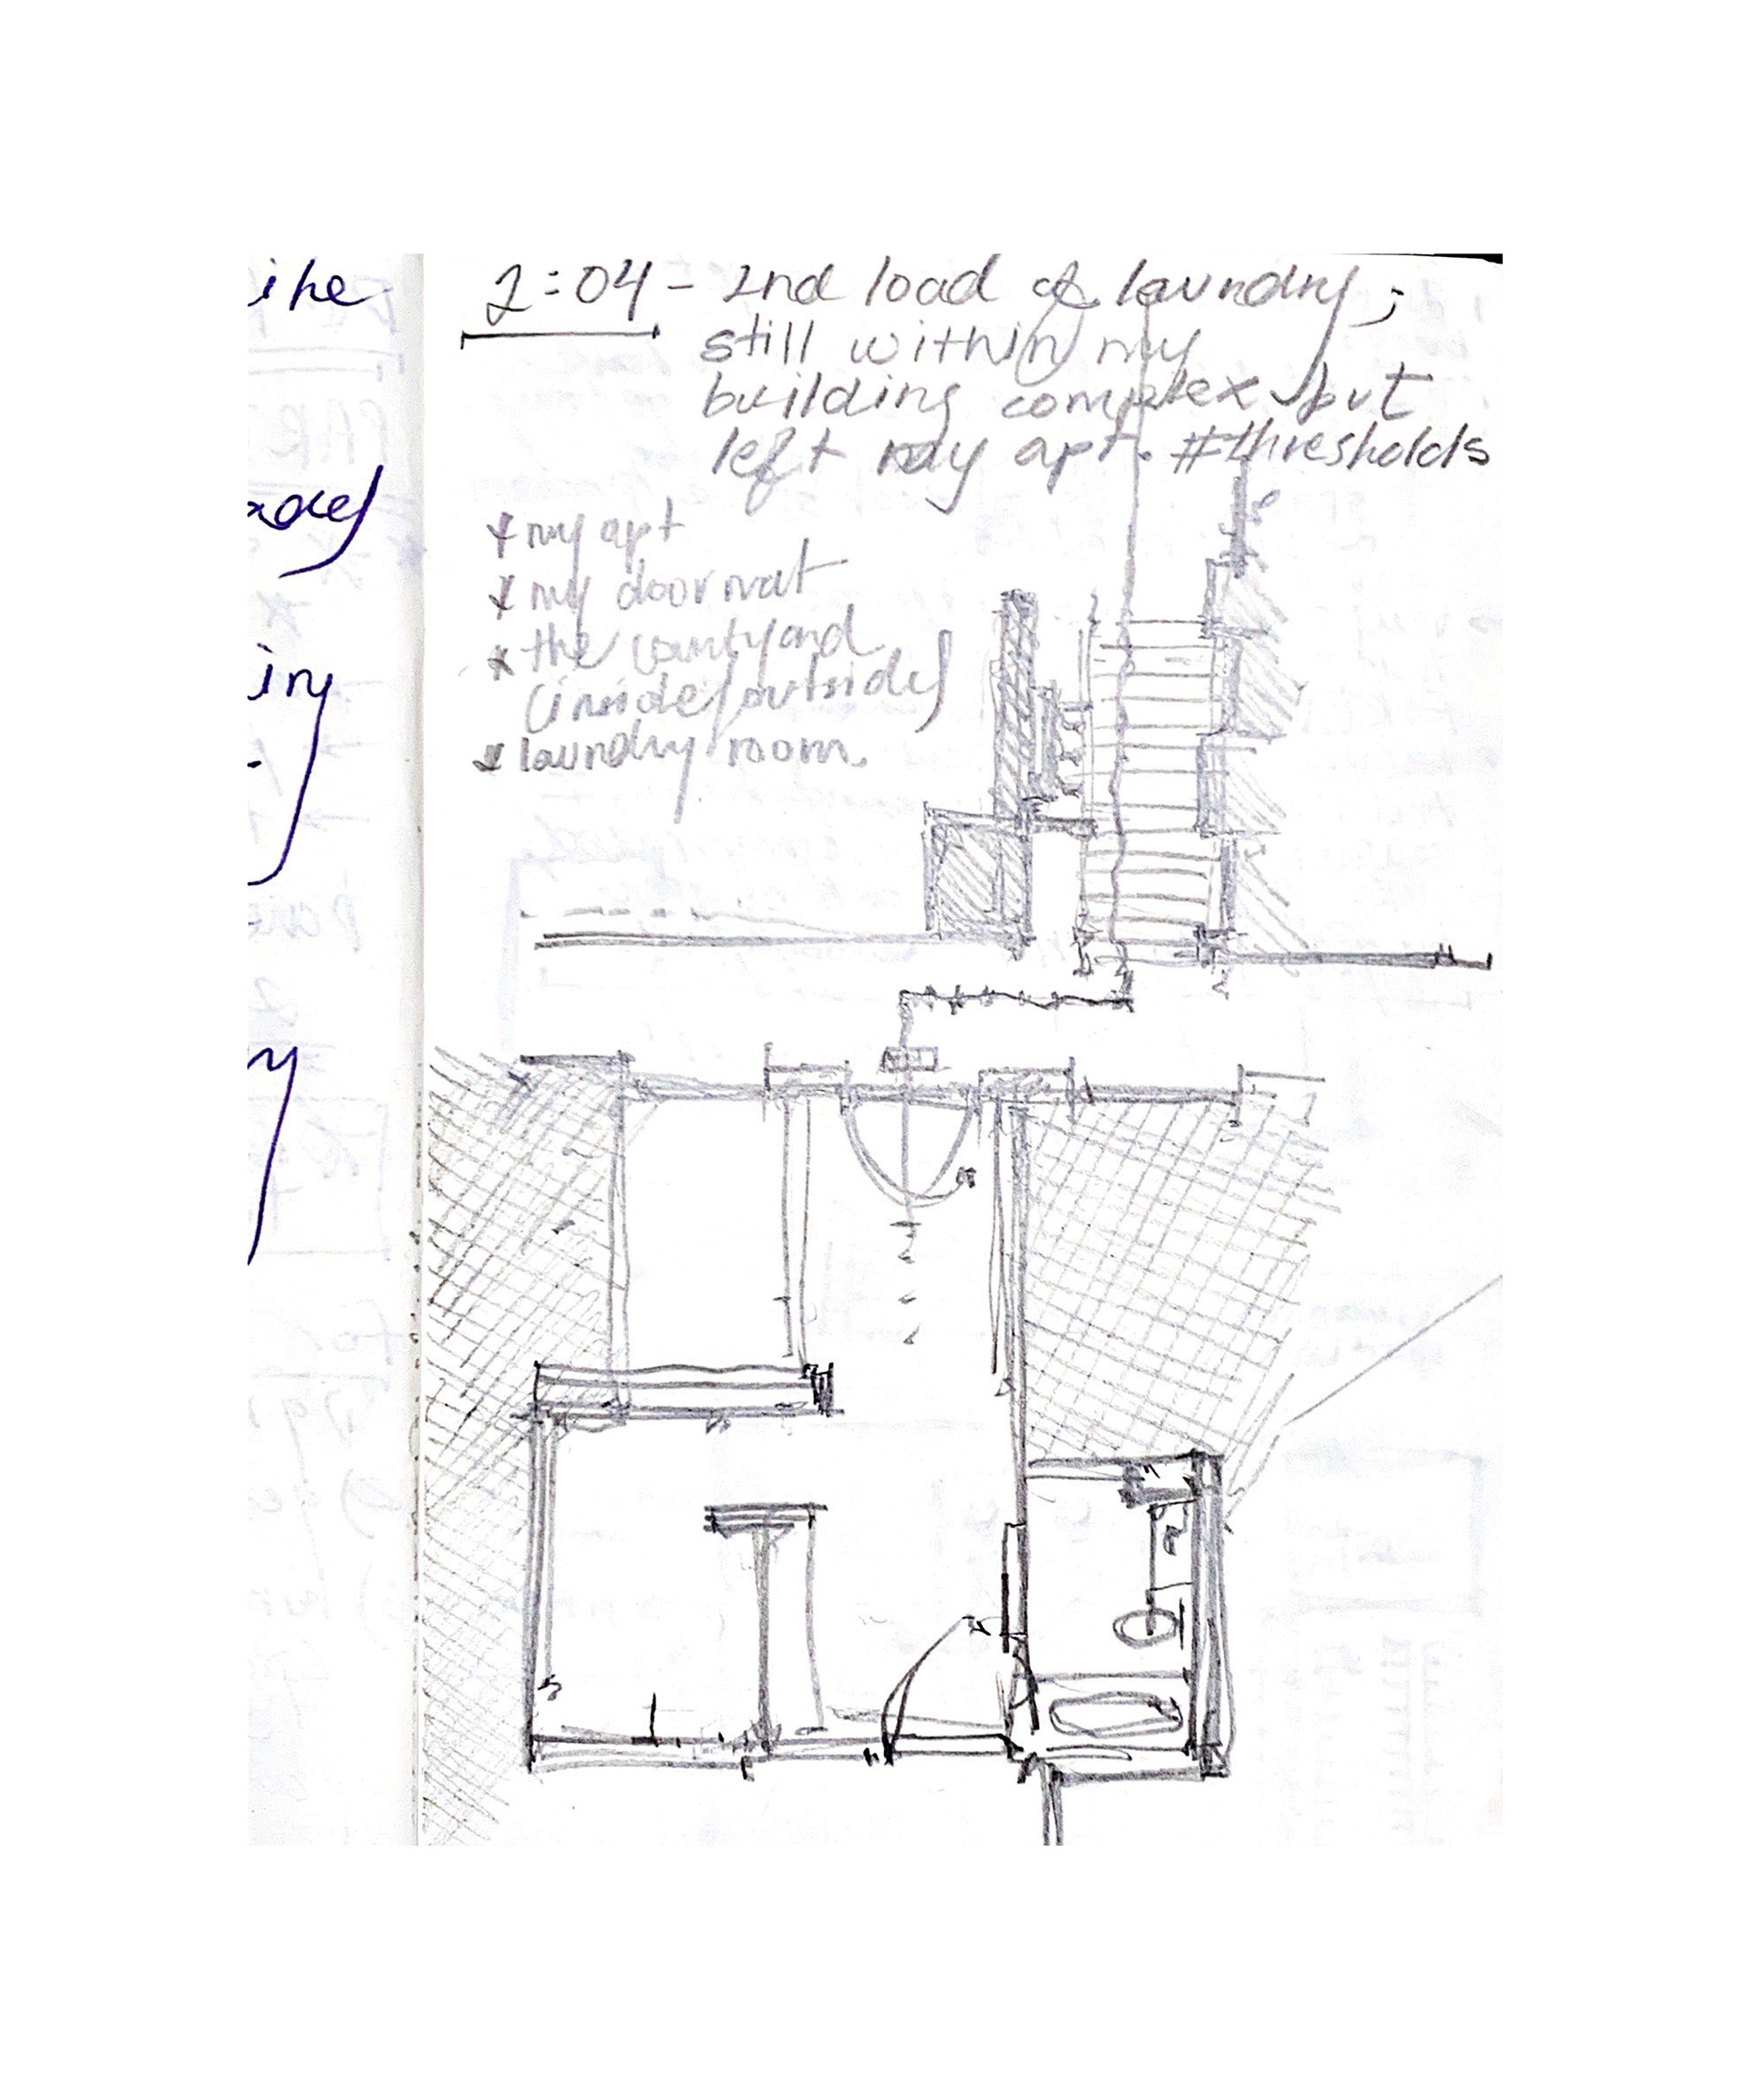 ine
2:04 - 2nd load of laundry;
still within my
building complex but
left my apt. #thresholds
* my apt
* my doormat
* the courtyard
(inside/outside)
* laundry room.